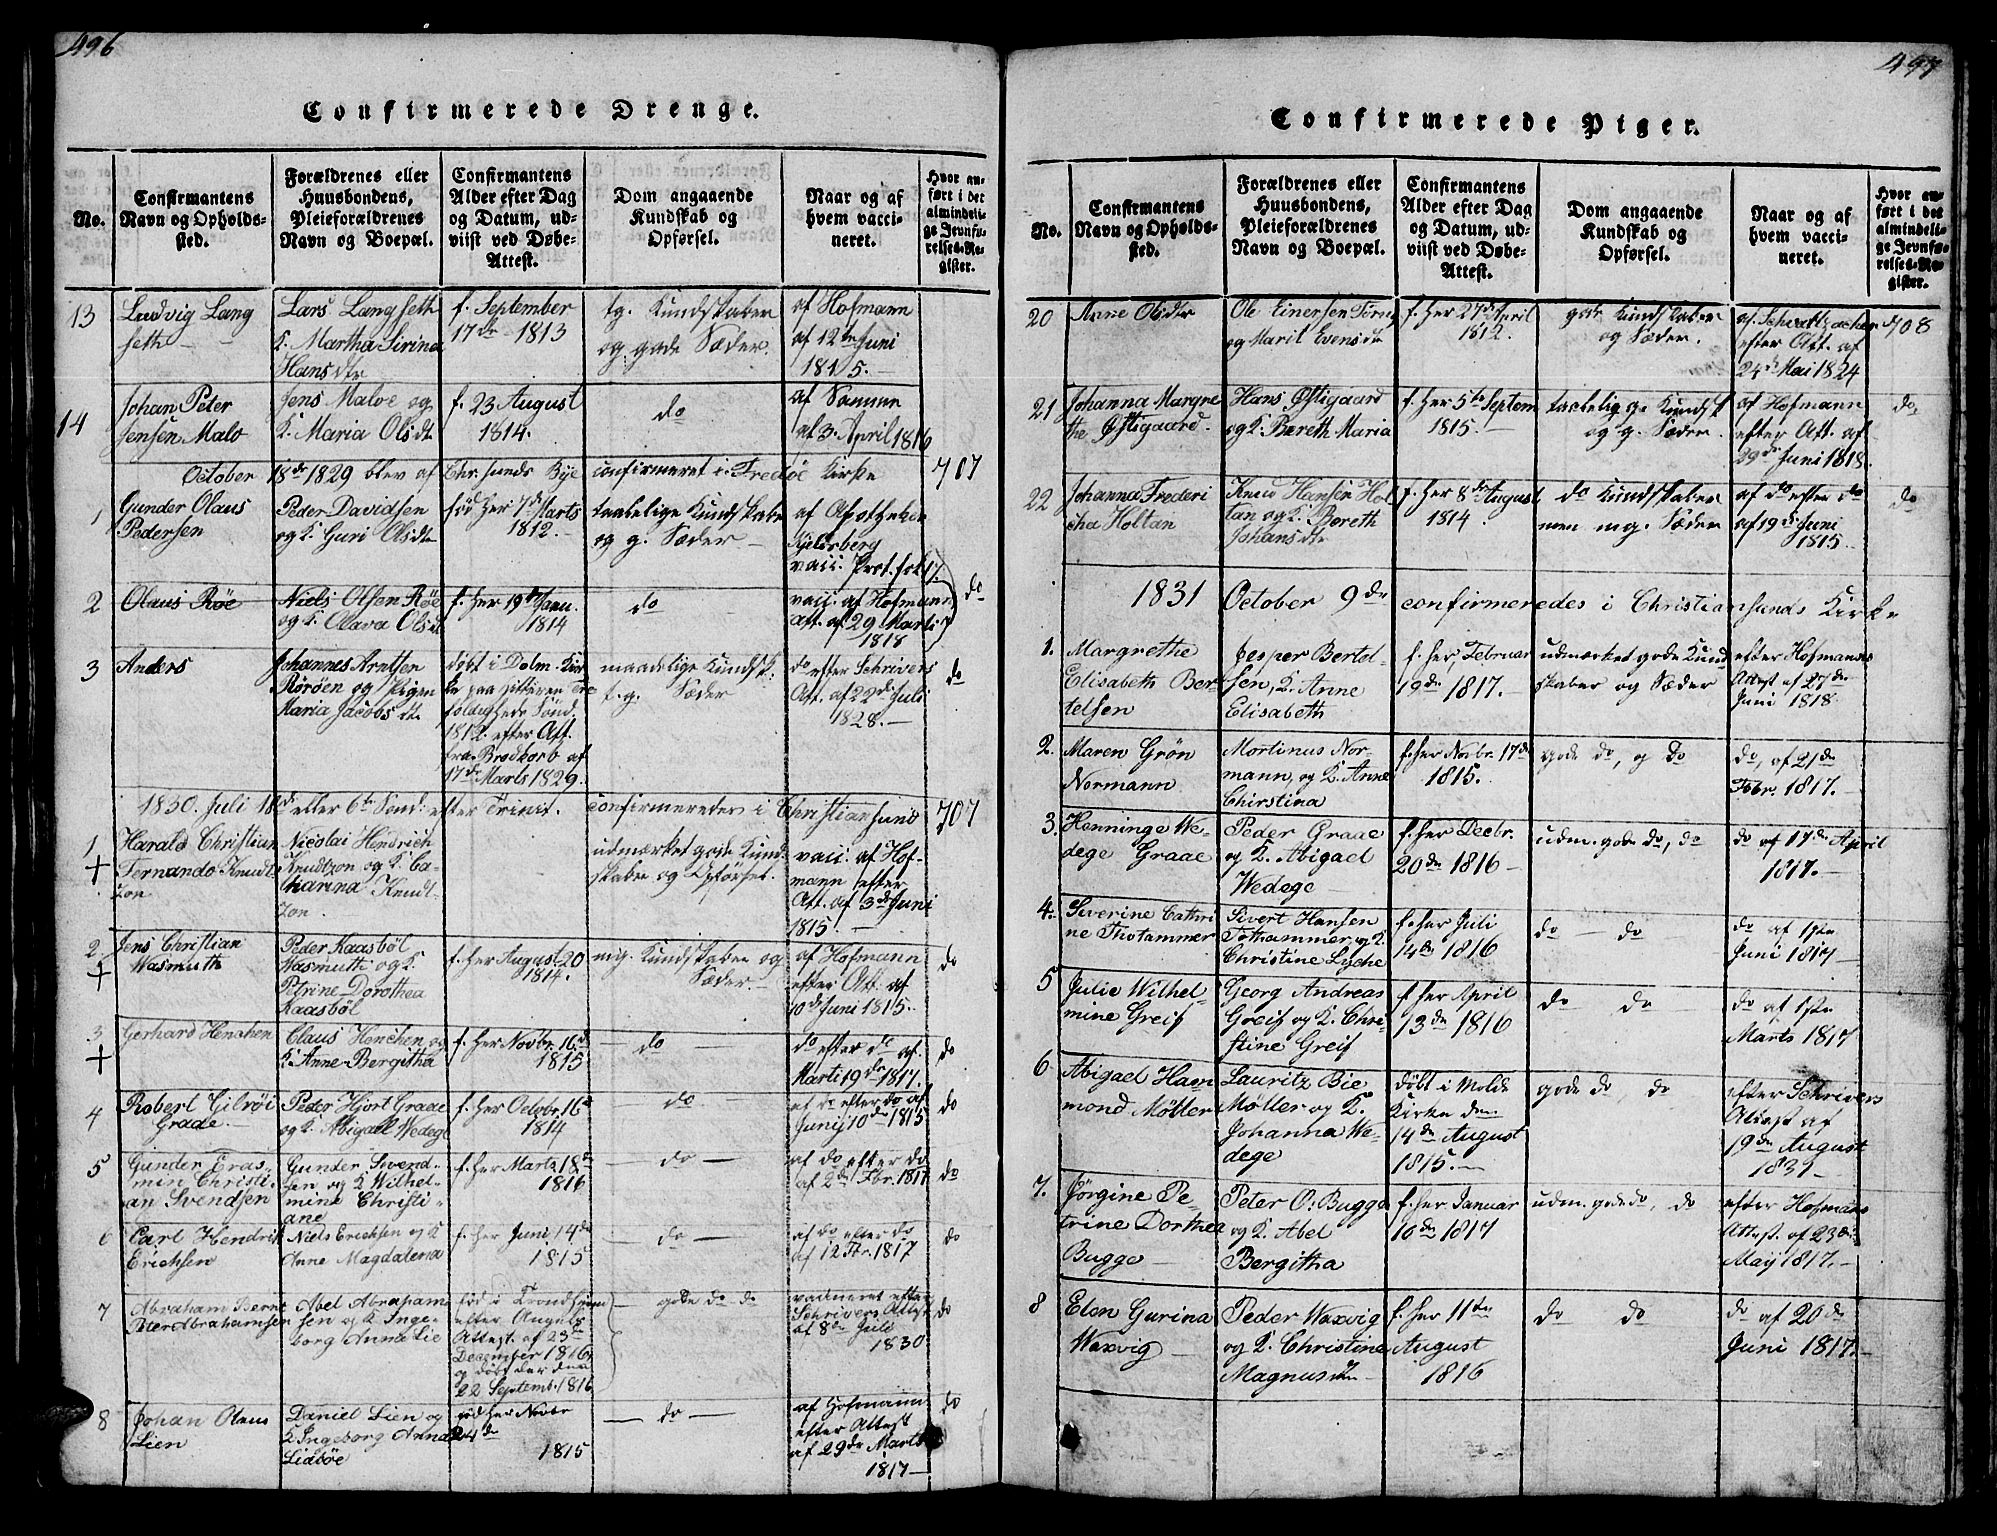 496
Confirmerede Drenge.
No.
Confirmantens
Navn og Opholds-
sted.
Forældrenes eller
Huusbondens,
Pleieforældrenes
Navn og Boepæl.
Confirmantens
Alder efter Dag
og Datum, ud-
viist ved Døbe-
Attest.
Dom angaaende
Kundskab og
Opførsel.
Naar og af
hvem vacci-
neret.
Hvor an-
ført i det
almindeli-
ge Jevnfø-
relses-Re-
gister.
13
Ludvig Lang
seth
Lars Langseth
K. Martha Sirina
Hansdtr
f. September
17de 1813
tg. Kundskaber
og gode Sæder.
af Hofmann
af 12te Juni
1815.
14
Johan Peter
Jensen Malo
Jens Maloe og
K. Maria Olsdtr
f. 23 August
1814.
do
af Samme
af 3. April 1816
October 18de 1829 blev af Chr.sunds Bye confirmeret i Fredøe Kirke
707
1
Gunder Olaus
Pedersen
Peder Davidsen
og K. Guri Olsdtr
fød her 7de Marts
1812.
taalelige Kundskaber
og g. Sæder
af Apotheker
vacc. Prot. fol. 17.
2
Olaus Röe
Niels Olsen Röe
og K. Olava Olsdt
f. her 19de Janu.
1814
do
vacc. af Hofmann
Att. af 29 Marti
1818
do
3
Anders
Johannes Arntsen
Rörøen og Pigen
Maria Jacobsdtr
døbt i Dolm. Kir
1812. efter Att.
fra Brodkorb af
17de Marts 1829.
maadelige Kundsk.
t. g. Sæder
do efter Schrivers
Att. af 22de Juli
1828.
do
1830. Juli 18de eller 6te Sønd. efter Trinit. confirmeredes i Christiansund
707
1
+
Harald Christian
Fernando Knudt
zon
Nicolai Hendrich
Knudtzon og K. Ca-
tharina Knudt
zon.
udmærket gode Kund
skaber og Opførsel.
vacc. af Hof-
mann efter
Att. af 3de Juni
1815.
2
+
Jens Christian
Wasmuth
Peder Kaasböl
Wasmuth og K.
Petrine Dorothea
Kaasböl
f. her August 20
1814.
mg. Kundskaber og
Sæder.
af Hofmann
efter Att. af
10de Juni 1815.
do
3
+
Gerhard Henchen
Claus Henchen og
K. Anne Bergitha
f. her Novbr. 16de
1815
do
do efter do af.
Marti 19de 1817.
do
4
Robert Gilröi
Grade
Peder Hjort Graae
og K. Abigael Wedege
f. her Octobr. 16de
1814
do
af do efter do af
Junij 10de 1815
do
5
Gunder Eras-
min Christi-
an Svendsen
Gunder Svend-
sen og K Wilhel-
mine Christi-
ane
f. her Marts 18de
1816
do
af do efter do
af 2de Fbr. 1817
do
6
Carl Hendrik
Erichsen
Niels Erichsen og K
Anne Magdalena
f. her Juni 14de
1815
do
af do efter do
af 12 Fbr. 1817
do
7
Abraham Bernt
Peter Abrahamsen
Abel Abraham
sen og K Inge-
borg Anna Lie
fød i Trondhjem
efter Angels
Attest. af 23de
December 1816
og døbt der den
22 Septemb. 1816
gode do do
vaccineret efter
Schrivers Attest
af 8de Juli
1830
do
8
Johan Olaus
Lien
Daniel Lien og
K Ingeborg Anna
Lidböe
fød her Novbr
24de
1815
do
af Hofmann
efter Attest
af 29de Marts
1817
do
497
Confirmerede Piger.
No.
Confirmantens
Navn og Opholds-
sted.
Forældrenes eller
Huusbondens,
Pleieforældrenes
Navn og Boepæl.
Confirmantens
Alder efter Dag
og Datum, ud-
viist ved Døbe-
Attest.
Dom angaaende
Kundskab og
Opførsel.
Naar og af
hvem vacci-
neret.
Hvor an-
ført i det
almindeli-
ge Jevnfø-
relses-Re-
gister.
20
Anne Olsdtr
Ole Einersen
og Marit Evensdtr
f. her 27de April
1812.
gode Kundskaber
og Sæder.
efter Att. af
24de Mai 1824
708
21
Johanna Margre
the Østigaard
Hans Østigaard
og K. Bereth Maria
f. her 5te Septem
1815.
taalelig g. Kundsk
og g. Sæder.
af Hofmann
efter Att. af
29de Juni 1818.
do
22
Johanna Frederi
cha Holtan
Knud Hansen Hol
tan og K. Bereth
Johansdtr
f. her 8de August
1814.
do Kundskaber
men mg. Sæder
af do efter do
af 19de Juni
1815
do
1831 October 9de confirmeredes i Christiansunds Kirke
1.
Margrethe
Elisabeth Ber-
telsen
Jesper Bertel-
sen, K. Anne
Elisabeth
f. her, Februar
19de 1817.
udmærket gode Kund
skaber og Sæder
efter Hofmanns
Attest af 27de
Juni 1818.
2.
Maren Grön
Normann
Mortinus Nor-
mann, og K. Anne
Chirstina
f. her Novbr. 17de
1815.
gode do, og do
do, af 21de
Febr. 1817.
3.
Henninge We-
dege Graae
Peder Graae
og K. Abigael
Wedege
f. her Decbr.
20de 1816
udm. gode do, do
do af 17de April
1817.
4.
Siverine Cathri
ne Thotammer
Sivert Hansen
Tothammer og K.
Christine Lyche
f. her Juli
14de 1816
do do
do af 1ste
Juni 1817
5
Julie Wilhel-
mine Greif
Georg Andreas
Greif og K. Chri-
stine Greif
f her April
13de 1816
do do
do af 1ste
Marts 1817
6
Abigael Ham
mond Möller
Lauritz Bie
Möller og K.
Johanna We-
dege
døbt i Molde
Kirke den
14de August
1815.
gode do, do
efter Schrivers
Attest af
19de August
1831
7.
Jörgine Pe-
trine Dorthea
Bugge
Peter O: Bugge
og K. Abel
Bergitha
f. her Januar
16de 1817
udm. gode do, do
efter Hofmans
Attest. af 23de
Maij 1817.
8
Elen Gurina
Waxvig
Peder Waxvig
og K. Christine
Magnusdtr
f. her 11te
August
1816
do do
do af 20de
Juni 1817.